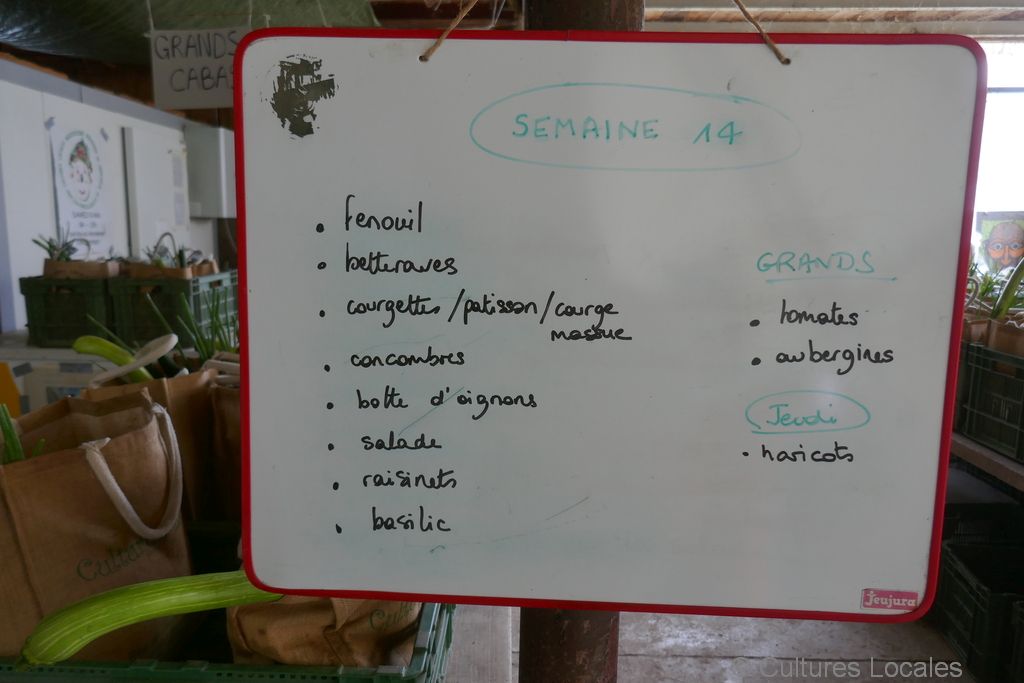 GRANDS
CABAS
SEMAINE 14
• fenouil
• betteraves
• courgettes / patisson / courge
massue
• concombres
• botte d'oignons
• salade
• raisinets
• basilic
GRANDS
• tomates
• aubergines
Jeudi
• haricots
Jeujura
© Cultures Locales